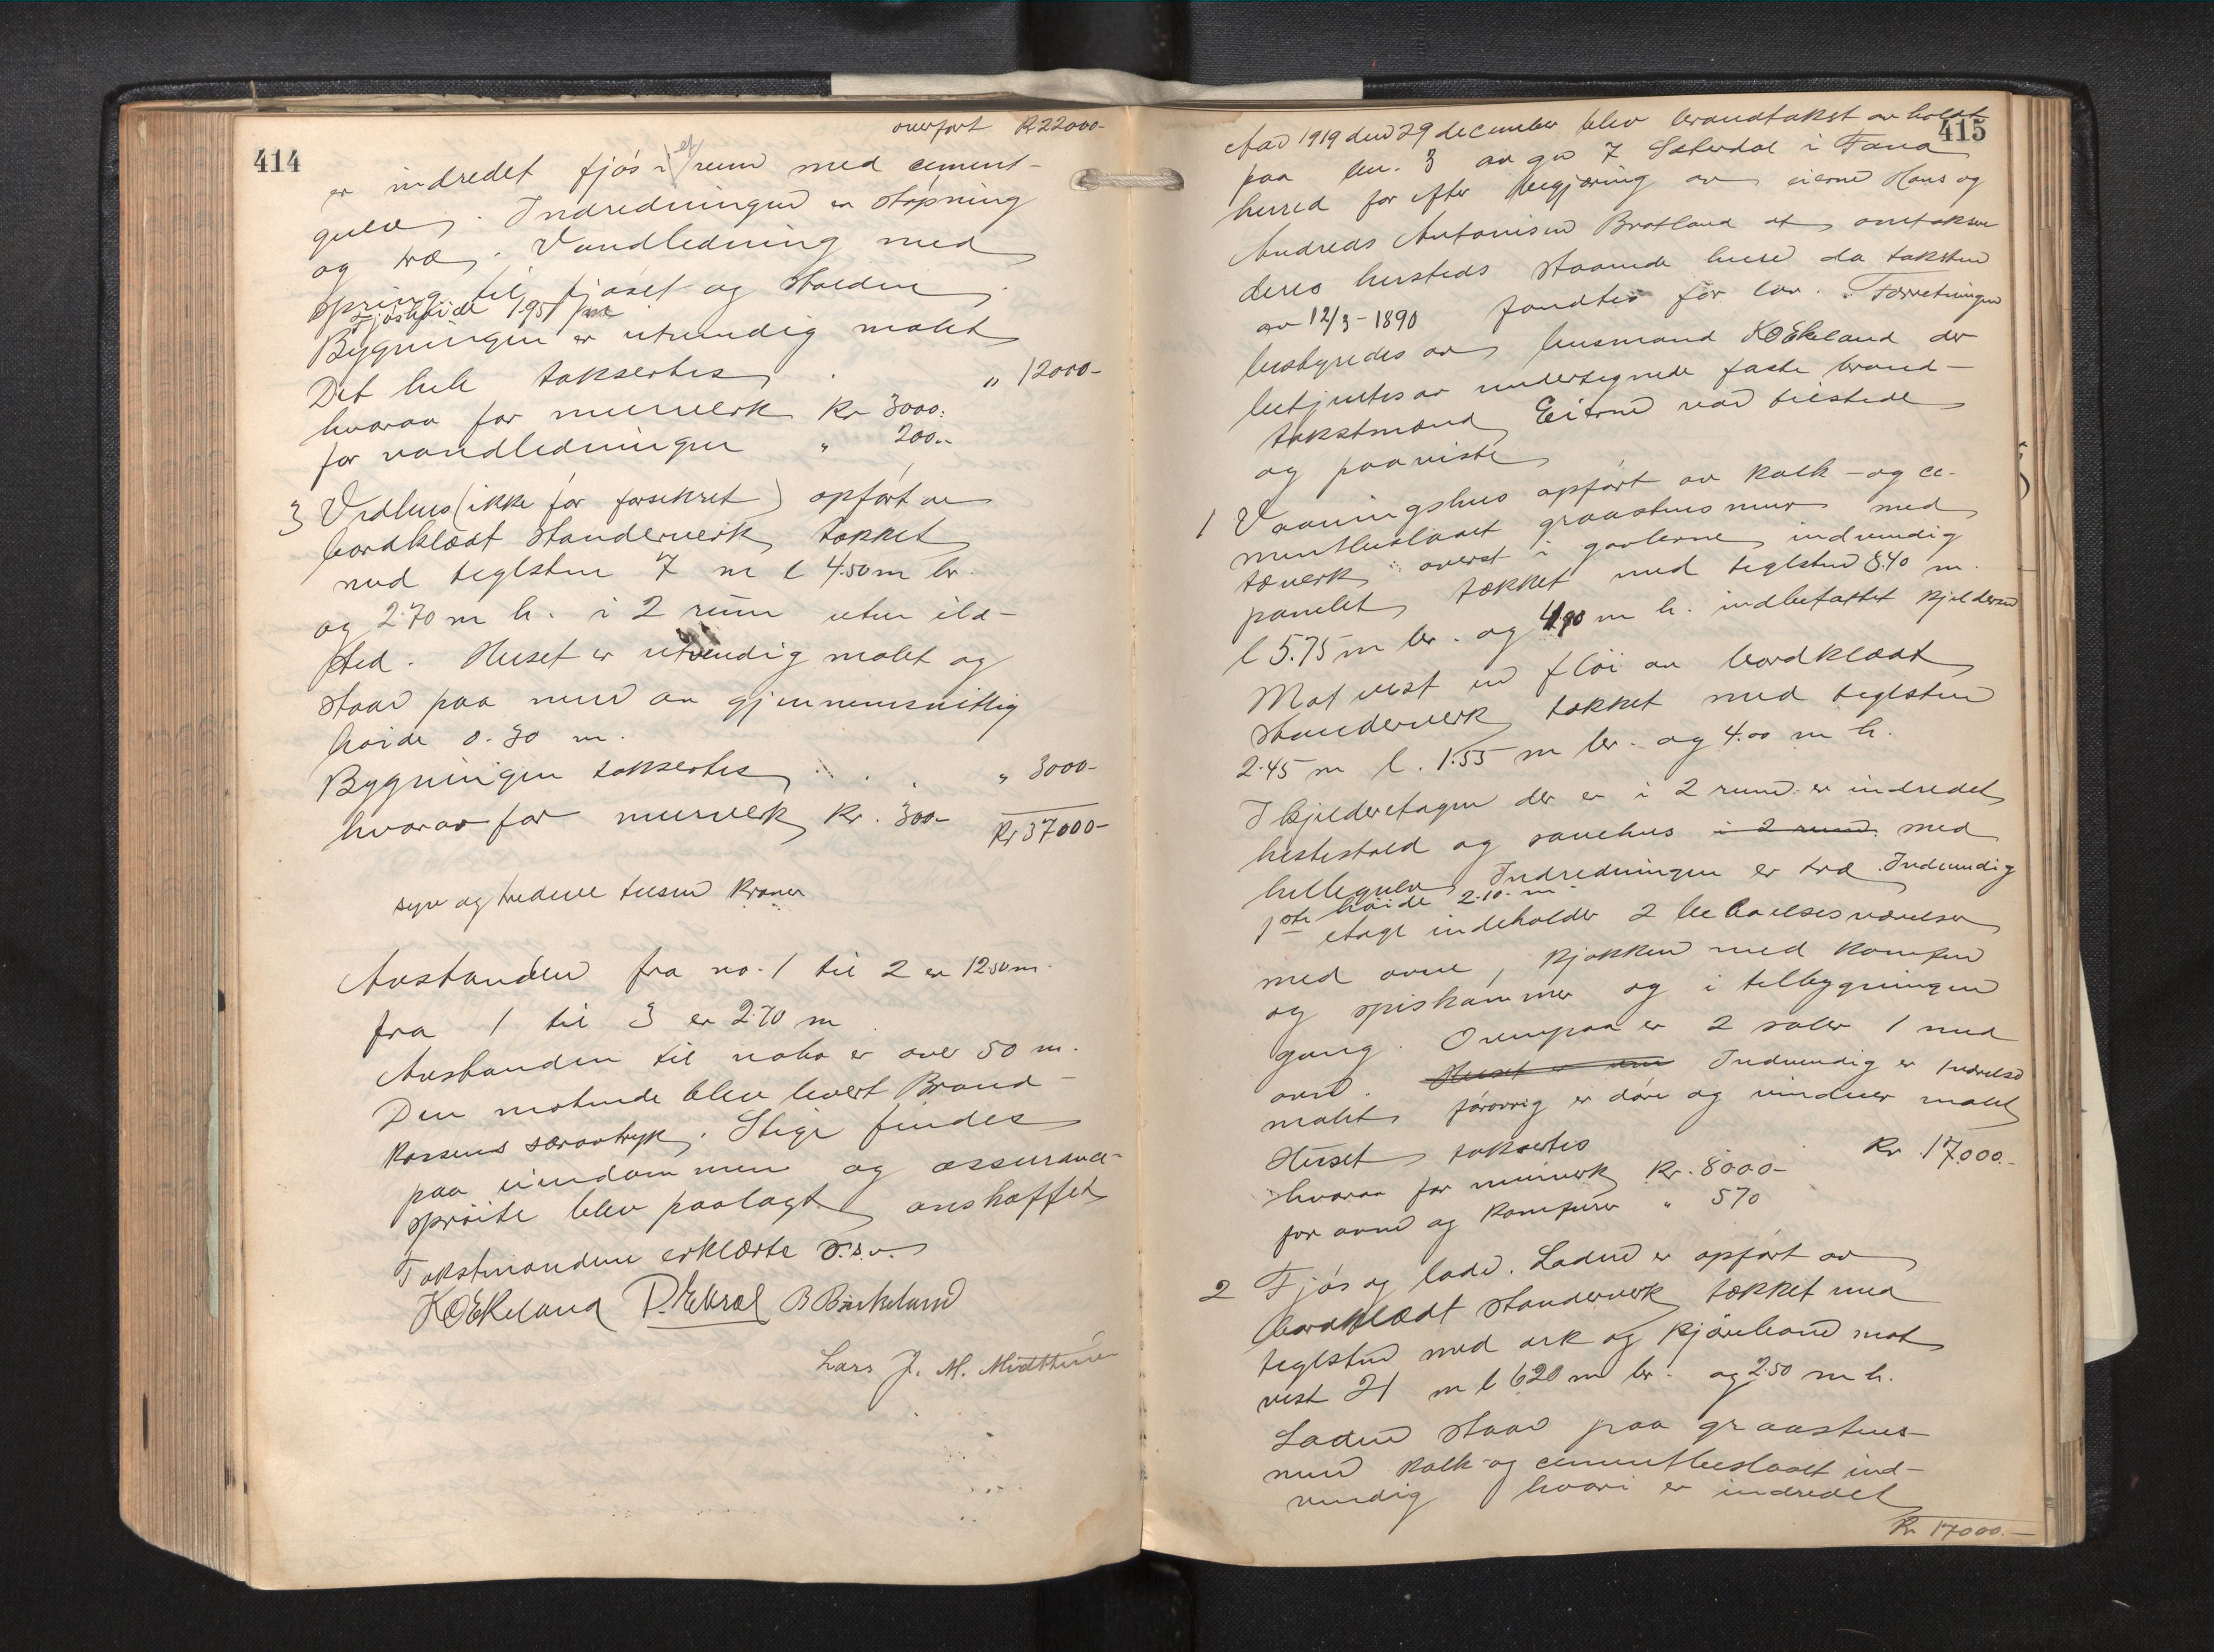 414
overført Kr 22000-
er indredet fjøs i et rum med cement-
gulv. Indredningen er støpning
og træ. Vandledning med
spring til fjøset og stalden.
Fjøshøide 1.95 m
Bygningen er utvendig malt
Det hele taksertes . " 12000-
hvorav for murverk Kr 3000.
for vandledningen " 200..
3 Vedhus (ikke før forsikret) opført av
bordklædt standerverk tækket
med teglsten 7 m l 4.50 m br.
og 2.70 m h. i 2 rum uten ild-
sted. Huset er utvendig malet og
staar paa mur av gjennemsnittlig
høide 0.30 m.
Bygningen taksertes . . . " 3000-
hvorav for murverk Kr. 300- Kr 37000-
syv og tredeve tusen Kroner
Avstanden fra no. 1 til 2 er 12.50 m.
fra 1 til 3 er 2.70 m
Avstanden til nabo er over 50 m.
Den møtende blev levert Brand-
kassens særavtryk. Stige findes
paa eiendommen og assurance-
sprøite blev paalagt anskaffet
Takstmændene erklærte o.s.v.
KOEkeland P. Ekrol B Birkeland
Lars J. M. Midttun
415
Aar 1919 den 29 december blev brandtakst avholdt
paa bn. 3 av gn 7 Sæterdal i Fana
herred for efter begjæring av eierne Hans og
Andreas Antonisen Bratland at omtaksere
deres hersteds staaende huse da taksten
av 12/3-1890 fandtes for lav. Forretningen
bestyredes av lensmand KOEkeland der
betjentes av undertegnede faste brand-
takstmænd Eierne var tilstede
og paaviste
1 Vaaningshus opført av kalk- og ce-
mentbeslaaet graastensmur med
træverk øverst i gavlerne indvendig
panelet, tækket med teglsten 8.40 m.
l 5.75 m br. og 4.90 m h. indbefattet kjelderen
Mot vest en fløi av bordklædt
standerverk tækket med teglsten
2.45 m l. 1.55 m br. og 4.00 m h.
I kjelderetagen der er i 2 rum er indredet
hestestald og sauehus i 2 rum. med
hellegulv Indredningen er træ. Indvendig
høide 2.10. m.
1ste etage indeholder 2 beboelsesværelser
med ovne, kjøkken med komfur
og spiskammer og i tilbygningen
gang. Ovenpaa er 2 saler 1 med
ovn. Huset er Indvendig er 1 værelse
malt forøvrig er døre og vinduer malt
Huset taksertes Kr. 17.000.-
hvorav for murverk Kr. 8000-
for ovne og komfurer " 570
2 Fjøs og lade. Laden er opført av
bordklædt standerverk tækket med
teglsten med ark og kjørebane mot
vest 21 m l 6.20 m br. og 2.50 m h.
Laden staar paa graastens-
mur kalk- og cementbeslaaet ind-
vendig hvori er indredet
Kr 17000.-